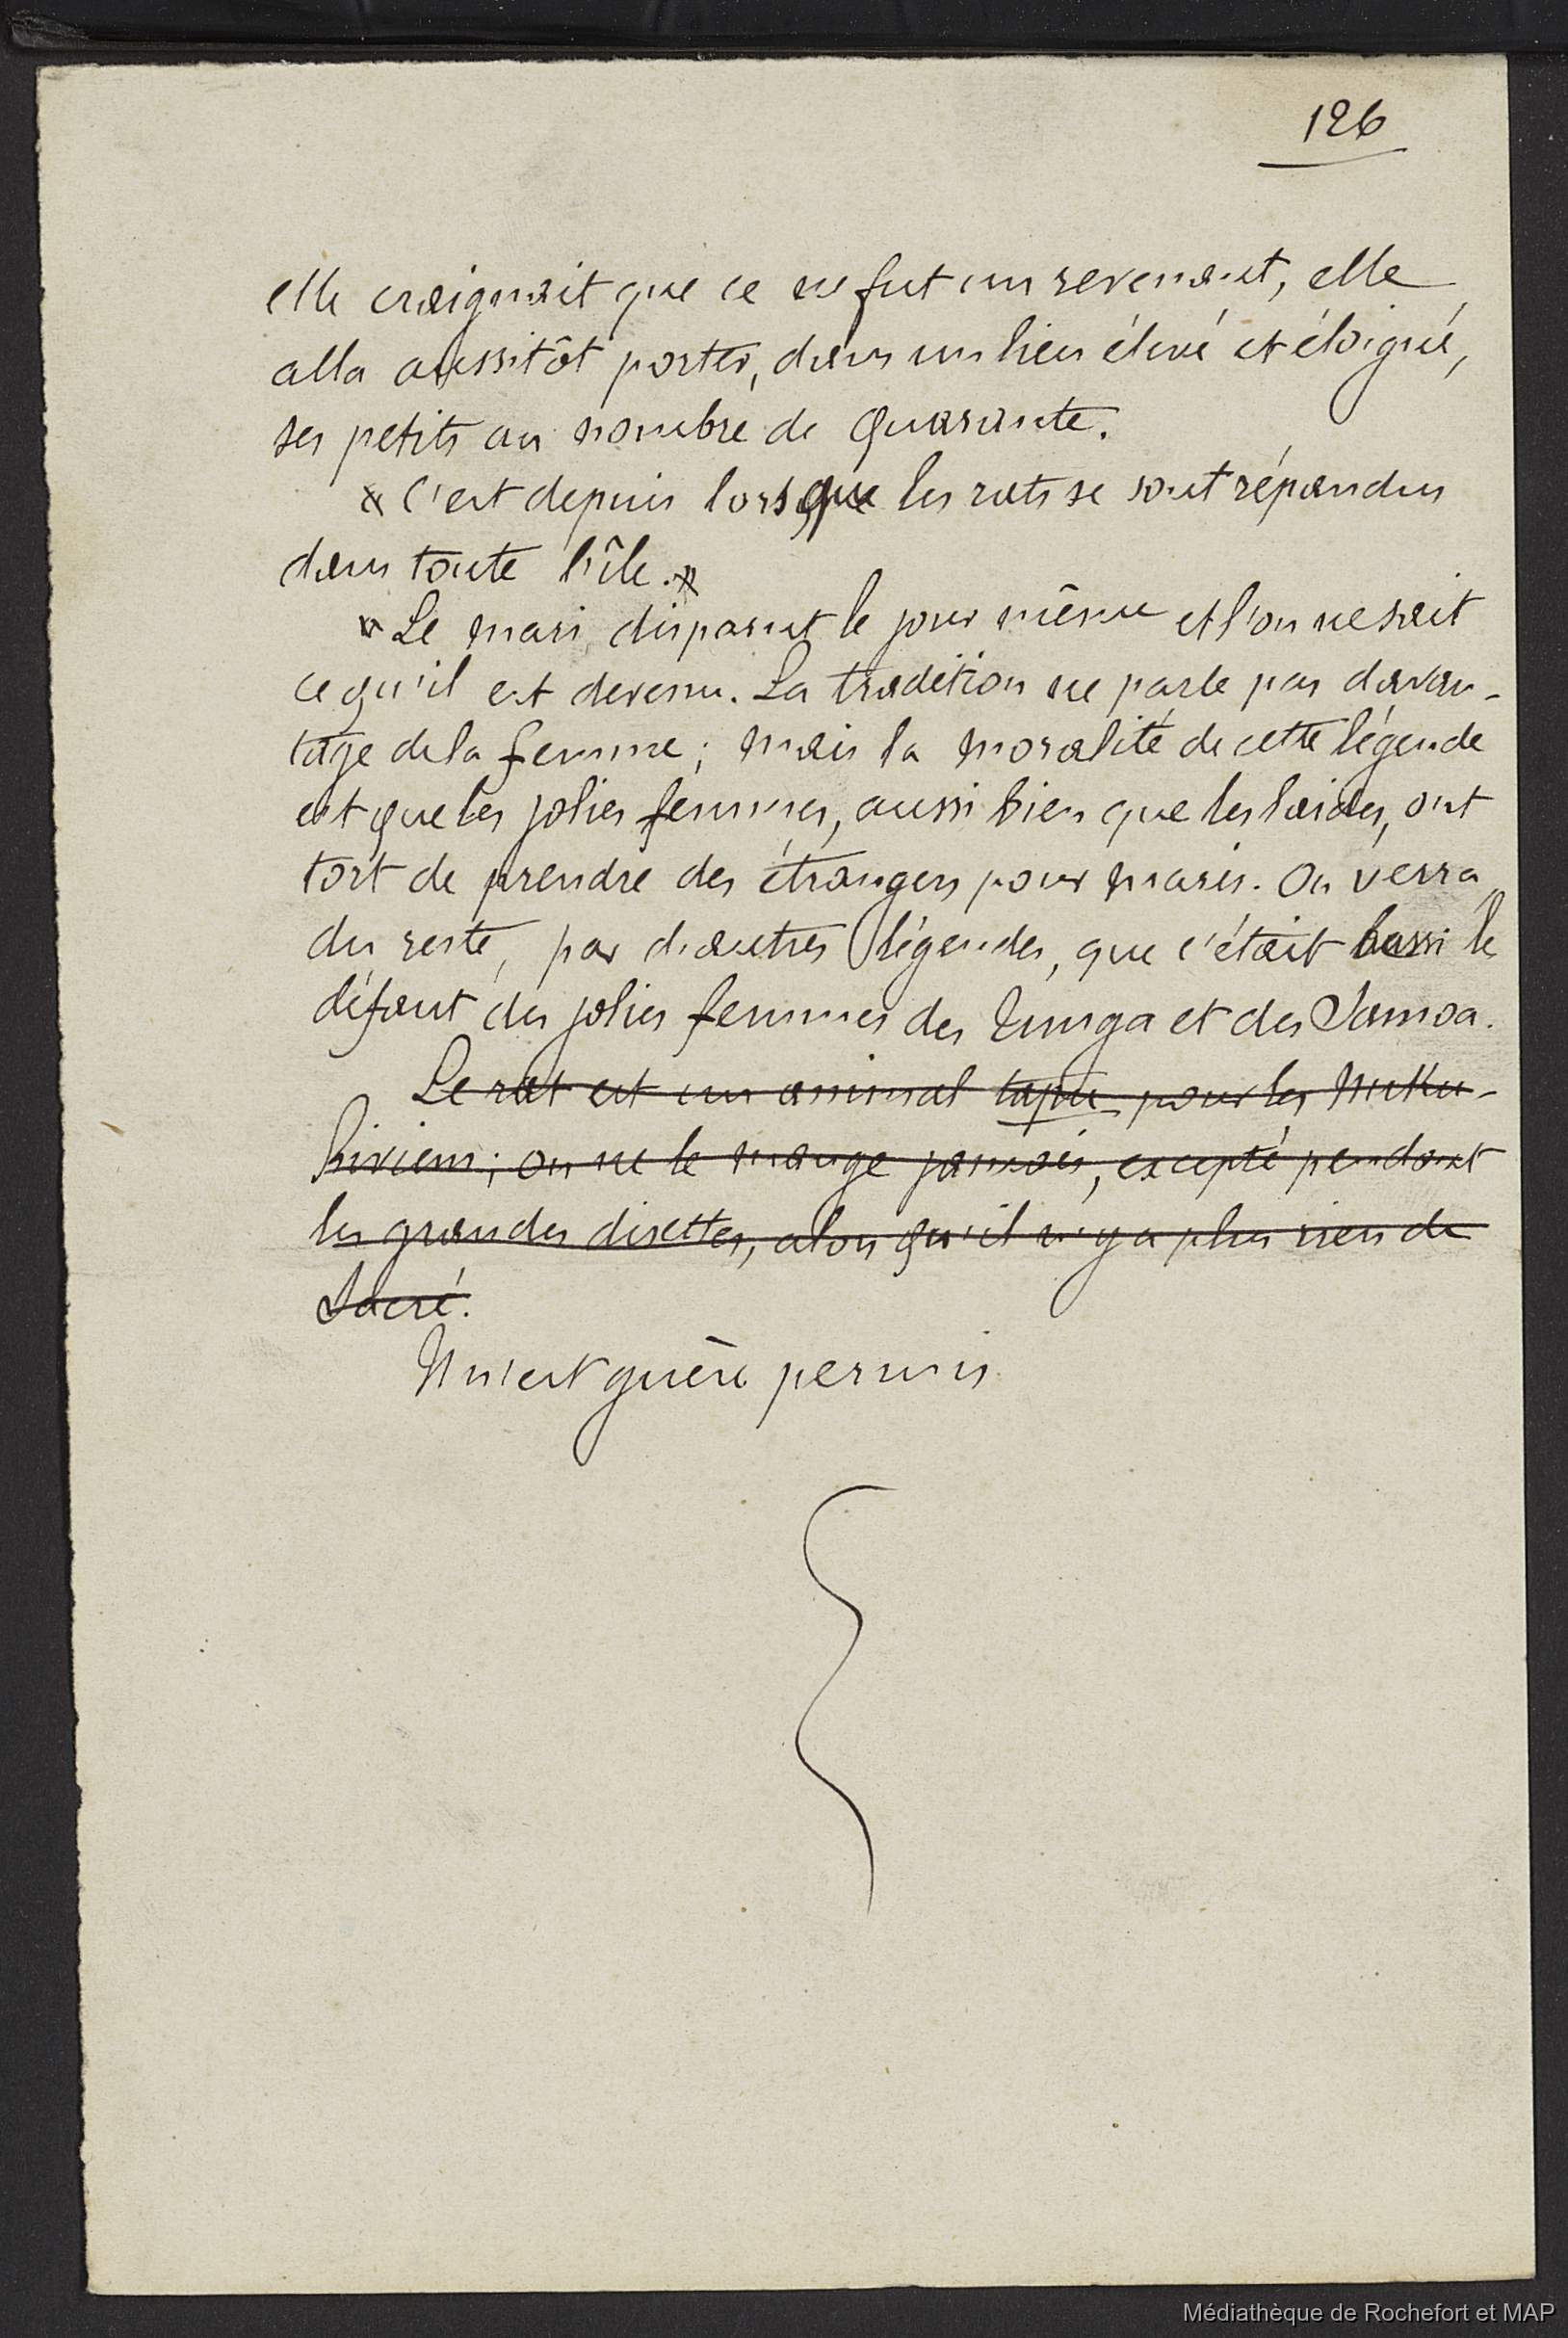 126
elle craignait que ce ne fut un revenant, elle
alla aussitôt porter, dans un lieu élevé et éloigné,
ses petits au nombre de quarante.
C'est depuis lors que les rats se sont répandus
dans toute l'île.
Le mari disparut le jour même et l'on ne sait
ce qu'il est devenu. La tradition ne parle pas davan-
tage de la femme; mais la moralité de cette légende
est que les jolies femmes, aussi bien que les laides, ont
tort de prendre des étrangers pour maris. On verra
du reste, par d'autres légendes, que c'était aussi le
défaut des jolies femmes des Tunga et des Samoa.
Le rat est un animal tapu pour les Nuku-
hiviens; on ne le mange jamais, excepté pendant
les grandes disettes, alors qu'il n'y a plus rien de
Sacré.
Il n'est guère permis
Médiathèque de Rochefort et MAP